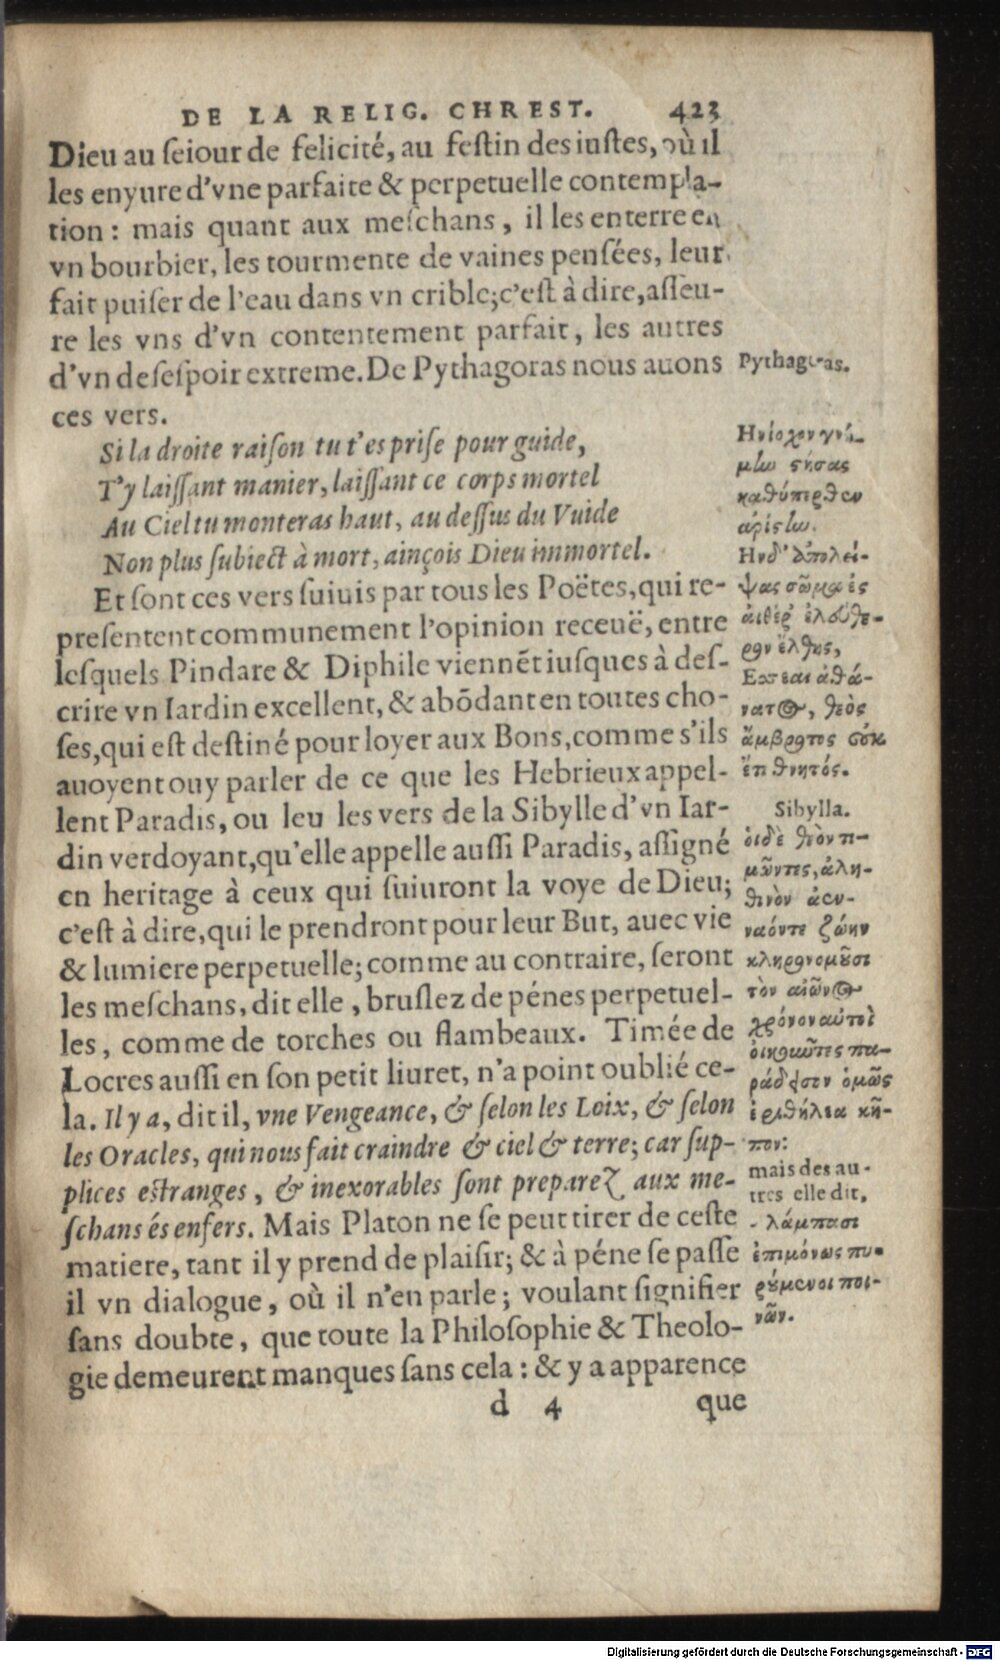 DE LA RELIG. CHREST. 423
Dieu au ſeiour de felicité, au feſtin des iuſtes, où il
les enyure d'vne parfaite & perpetuelle contempla-
tion : mais quant aux meſchans, il les enterre en
vn bourbier, les tourmente de vaines penſées, leur
fait puiſer de l'eau dans vn crible; c'eſt à dire, aſſeu-
re les vns d'vn contentement parfait, les autres
d'vn deſeſpoir extreme. De Pythagoras nous auons
ces vers.
Si la droite raiſon tu t'es priſe pour guide,
T'y laiſſant manier, laiſſant ce corps mortel
Au Ciel tu monteras haut, au deſſus du Vuide
Non plus ſubiect à mort, ainçois Dieu immortel.
Et ſont ces vers ſuiuis par tous les Poëtes, qui re-
preſentent communement l'opinion receuë, entre
leſquels Pindare & Diphile viennẽt iuſques à deſ-
crire vn Iardin excellent, & abõdant en toutes cho-
ſes, qui eſt deſtiné pour loyer aux Bons, comme s'ils
auoyent ouy parler de ce que les Hebrieux appel-
lent Paradis, ou leu les vers de la Sibylle d'vn Iar-
din verdoyant, qu'elle appelle auſſi Paradis, aſſigné
en heritage à ceux qui ſuiuront la voye de Dieu;
c'eſt à dire, qui le prendront pour leur But, auec vie
& lumiere perpetuelle; comme au contraire, ſeront
les meſchans, dit elle, bruſlez de pénes perpetuel-
les, comme de torches ou flambeaux. Timée de
Locres auſſi en ſon petit liuret, n'a point oublié ce-
la. Il y a, dit il, vne Vengeance, & ſelon les Loix, & ſelon
les Oracles, qui nous fait craindre & ciel & terre; car ſup-
plices eſtranges, & inexorables ſont preparez aux me-
ſchans és enfers. Mais Platon ne ſe peut tirer de ceſte
matiere, tant il y prend de plaiſir; & à péne ſe paſſe
il vn dialogue, où il n'en parle; voulant ſignifier
ſans doubte, que toute la Philoſophie & Theolo-
gie demeurent manques ſans cela : & y a apparence
d 4 que
Pythagoras.
Ηνίοχον γνώ-
μλω ςήσας
καθύπερθεν
ἀρίςλω.
Ην δ' ἀπολεί-
ψας σῶμα ἐς
αἰθέρ' ἐλεύθε-
ρον ἔλθῃς,
Εσσεαι ἀθά-
νατος, θεὸς
ἄμβροτος οὐκ
ἔτι θνητός.
Sibylla.
οἱ δὲ θεὸν τι-
μῶντες, ἀλη-
θινὸν ἀεν-
ναόντε ζώην
κληρονομοῦσι
τὸν αἰῶνος
χρόνον αὐτοὶ
οἰκοῦντες πα-
ράδεισον ὁμῶς
ἐριθήλεα κῆ-
πον:
mais des au-
tres elle dit,
- λάμπασι
ἐπιμόνως πυ-
ρούμενοι ποι-
νᾶν.
Digitalisierung gefördert durch die Deutsche Forschungsgemeinschaft - DFG